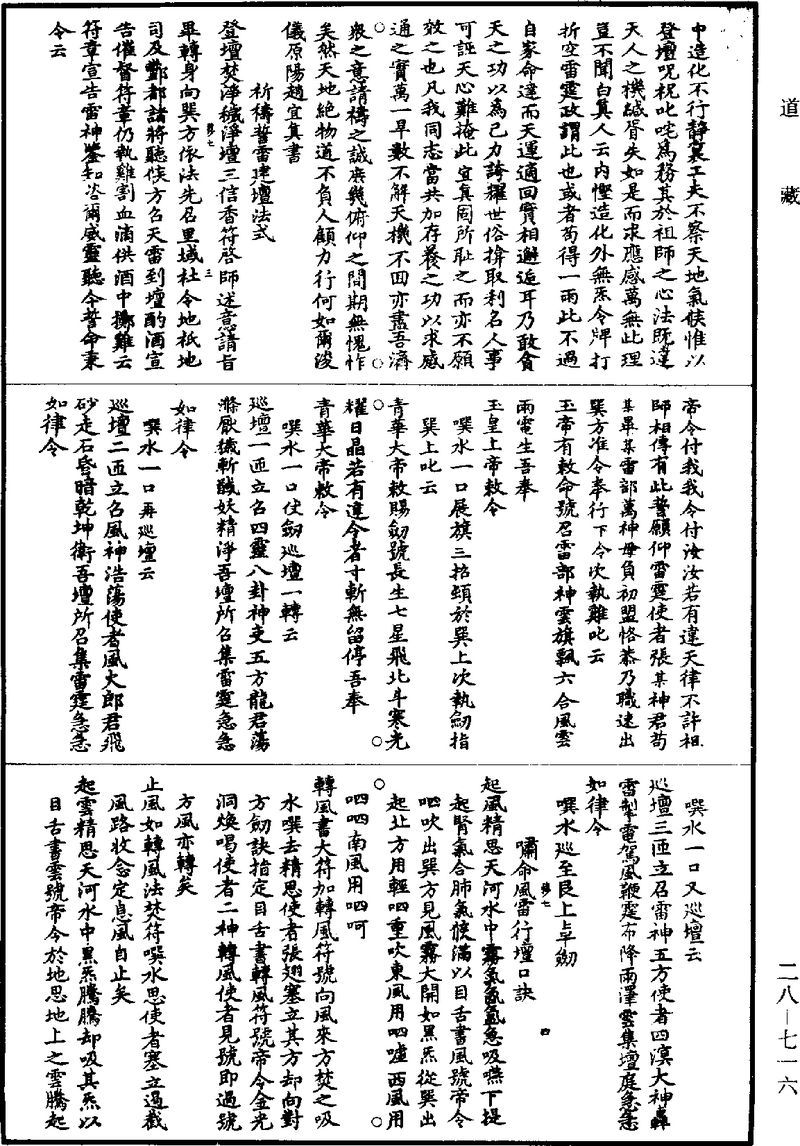 道藏
中造化不行靜裏工夫不察天地氣候惟以
登壇呪祝叱咤爲務其於祖師之心法既違
天人之機緘胥失如是而求應感萬無此理
豈不聞白真人云内慳造化外無炁令牌打
折空雷霆政謂此也或者苟得一雨此不過
自家命達而天運適回實相邂逅耳乃敢貪
天之功以爲己力誇耀世俗揜取利名人事
可誣天心難掩此宜真固所恥之而亦不願
效之也凡我同志當共加存養之功以求感
通之實萬一旱數不解天機不回亦盡吾濟
衆之意請禱之誠庶幾俯仰之間期無愧怍
矣然天地絶物道不負人顧力行何如爾浚
儀原陽趙宜真書
祈禱誓雷建壇法式
登壇焚淨穢淨壇三信香符啓師述意請旨
畢轉身向巽方依法先召里域社令地祇地
司及酆都諸將聽候方召天雷到壇酌酒宣
告催督符章仍執雞割血滴供酒中擲雞云
符章宣告雷神鑒知咨爾威靈聽令誓命秉
令云
帝令付我我令付汝汝若有違天律不許祖
師相傳有此誓願仰雷霆使者張某神君苟
某畢某雷部萬神毋負初盟恪恭乃職速出
巽方准令奉行下令次執雞叱云
玉帝有敕命號召雷部神雲旗飄六合風雲
雨電生吾奉
玉皇上帝敕令
噀水一口展旗三招頭於巽上次執劒指
巽上叱云
青華大帝敕賜劒號長生七星飛北斗寒光
耀日晶若有違令者寸斬無留停吾奉
青華大帝敕令
噀水一口仗劒巡壇一轉云
巡壇一匝立召四靈八卦神吏五方龍君蕩
滌厭穢斬馘妖精淨吾壇所召集雷霆急急
如律令
噀水一口再巡壇云
巡壇二匝立召風神浩蕩使者風火郎君飛
砂走石昏暗乾坤衛吾壇所召集雷霆急急
如律令
噀水一口又巡壇云
巡壇三匝立召雷神五方使者四溟大神轟
雷掣電駕風鞭霆布降雨澤雲集壇庭急急
如律令
噀水巡至艮上卓劒
嘯命風雷行壇口訣
起風精思天河水中霧氣氤氳急吸嚥下提
起腎氣合肺氣候滿以目舌書風號帝令
呬吹出巽方見風霧大開如黑炁從巽出
起北方用輕呬重吹東風用呬噓西風用
呬呬南風用呬呵
轉風書大符加轉風符號向風來方焚之吸
水噀去精思使者張翅塞立其方却向對
方劒訣指定目舌書轉風符號帝令金光
洞煥喝使者二神轉風使者見號即過號
方風亦轉矣
止風如轉風法焚符噀水思使者塞立過截
風路收念定息風自止矣
起雲精思天河水中黑炁騰騰却吸其炁以
目舌書雲號帝令於地思地上之雲騰起
二八—七一六